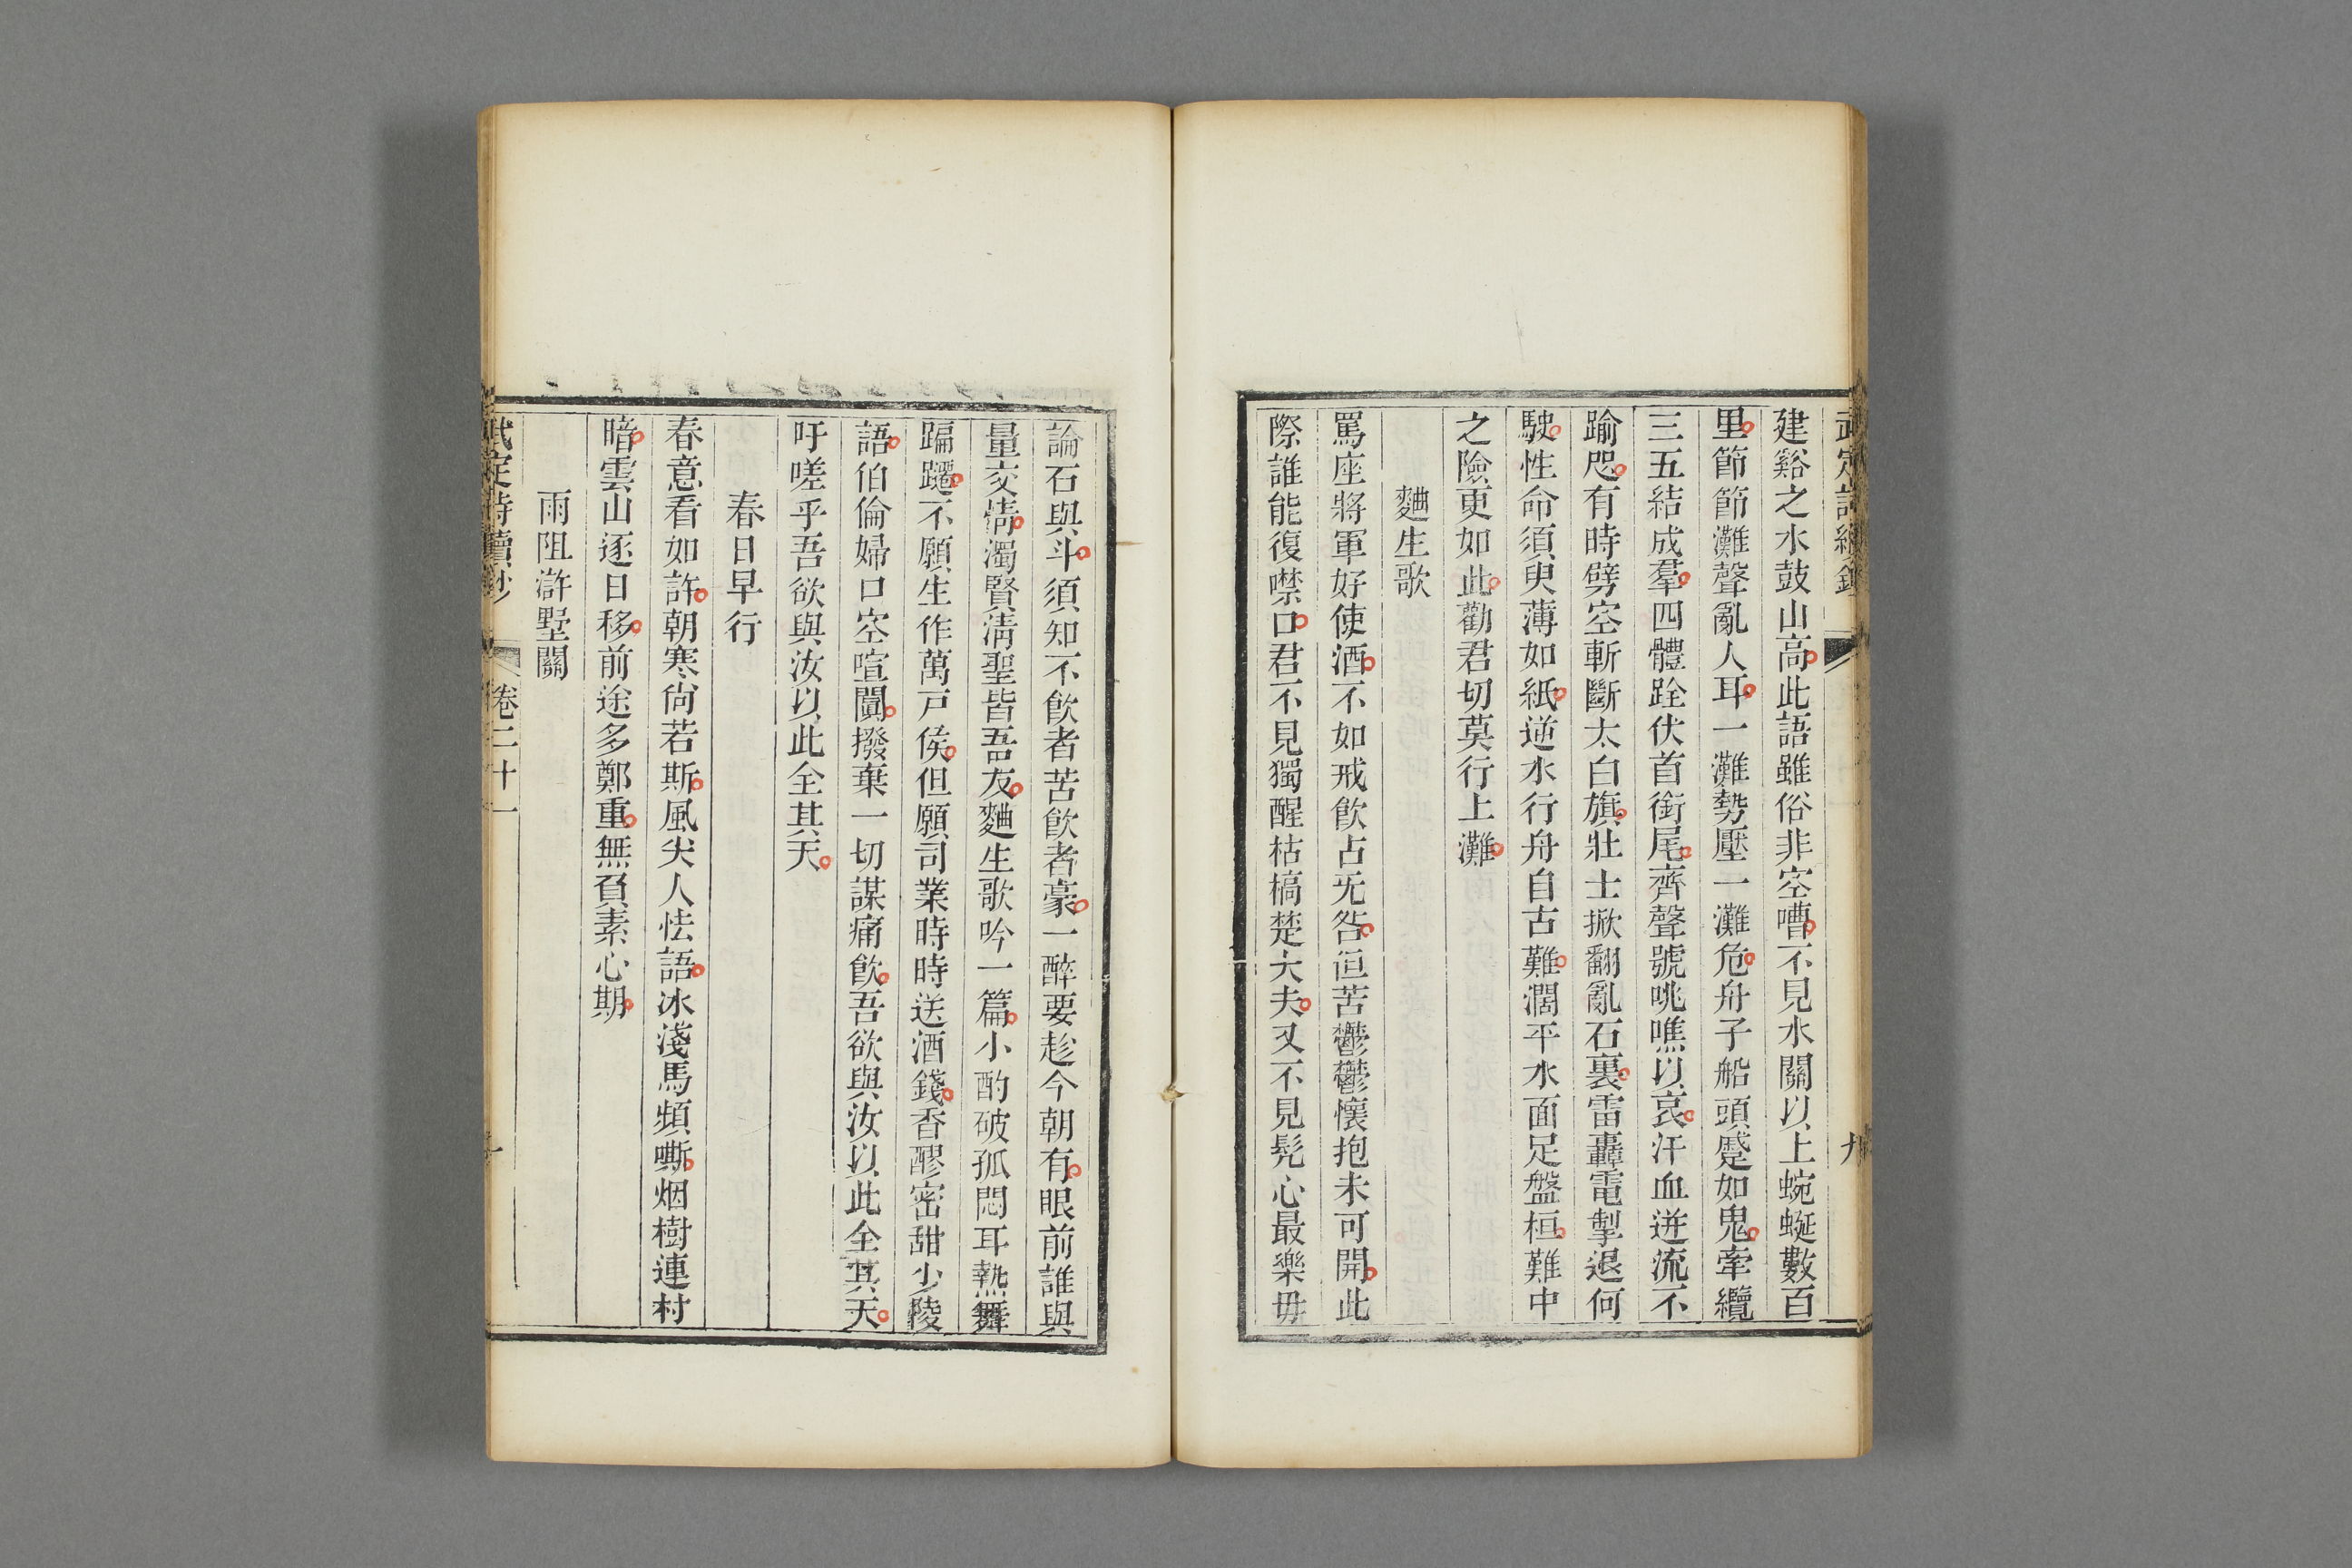 建谿之水鼓山高此語雖俗非空嘈不見水關以上蜿蜒數百
里節節灘聲亂人耳一灘勢壓一灘危舟子船頭蹙如鬼牽纜
三五結成羣四體跧伏首銜尾齊聲號咷噍以哀汗血迸流不
踰咫有時劈空斬斷太白旗壯士掀翻亂石裏雷轟電掣退何
駛性命須臾薄如紙逆水行舟自古難濶平水面足盤桓難中
之險更如此勸君切莫行上灘
麯生歌
罵座將軍好使酒不如戒飮占无咎但苦鬱鬱懷抱未可開此
際誰能復噤口君不見獨醒枯槁楚大夫又不見髠心最樂毋
論石與斗須知不飮者苦飮者豪一醉要趁今朝有眼前誰與
量交情濁賢淸聖皆吾友麯生歌吟一篇小酌破孤悶耳熱舞
蹁躚不願生作萬戸侯但願司業時時送酒錢香醪密甜少陵
語伯倫婦口空喧闐撥棄一切謀痛飮吾欲與汝以此全其天
吁嗟乎吾欲與汝以此全其天
春日早行
春意看如許朝寒尙若斯風尖人怯語冰淺馬頻嘶烟樹連村
暗雲山逐日移前途多鄭重無負素心期
雨阻滸墅關
武定詩續鈔
卷二十一